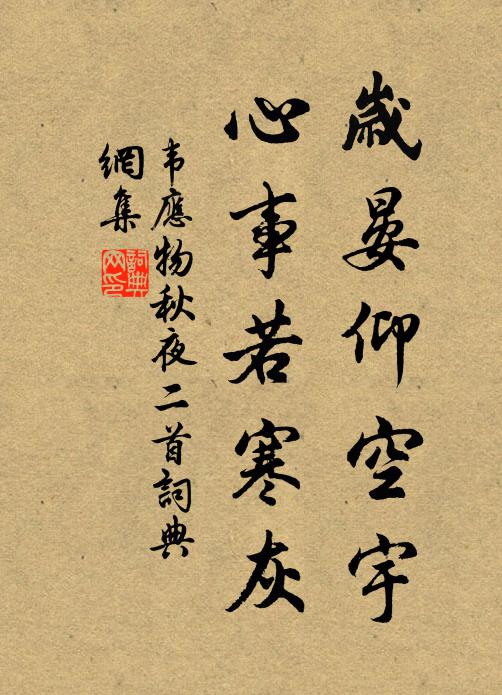 歲晏仰空宇
心事若寒灰
韦應物秋夜二首詞典
網集
詞典网印